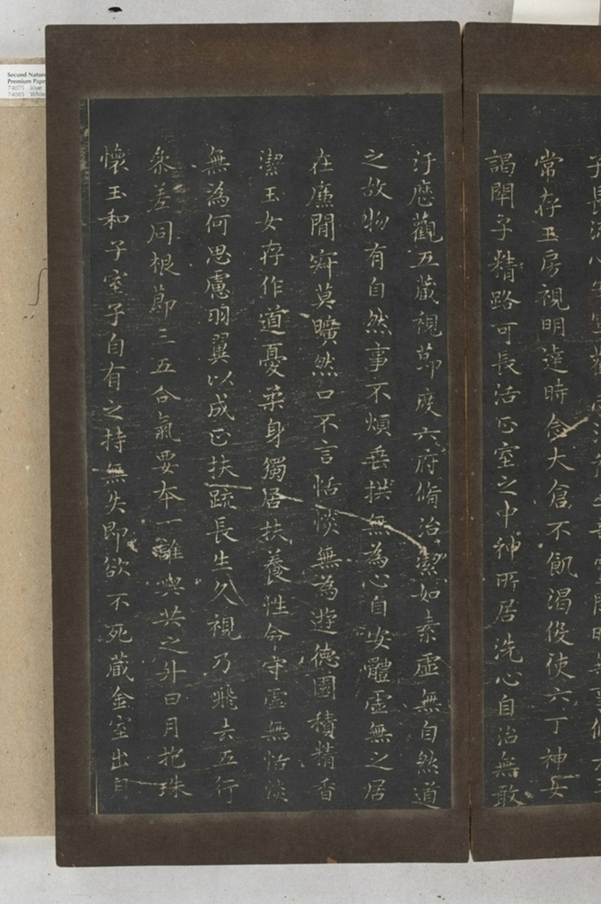 常存玉房視明達時念大倉不飢渴役使六丁神女
謁閉子精路可長活正室之中神所居洗心自治無敢
汙歷觀五藏視節度六府脩治潔如素虛無自然道
之故物有自然事不煩垂拱無為心自安體虛無之居
在廉間寂莫曠然口不言恬惔無為遊德園積精香
潔玉女存作道憂柔身獨居扶養性命守虛無恬淡
無為何思慮羽翼以成正扶疏長生久視乃飛去五行
參差同根節三五合氣要本一誰與共之升日月抱珠
懷玉和子室子自有之持無失即欲不死藏金室出
Second Nature
Premium Pape
74075 Blue